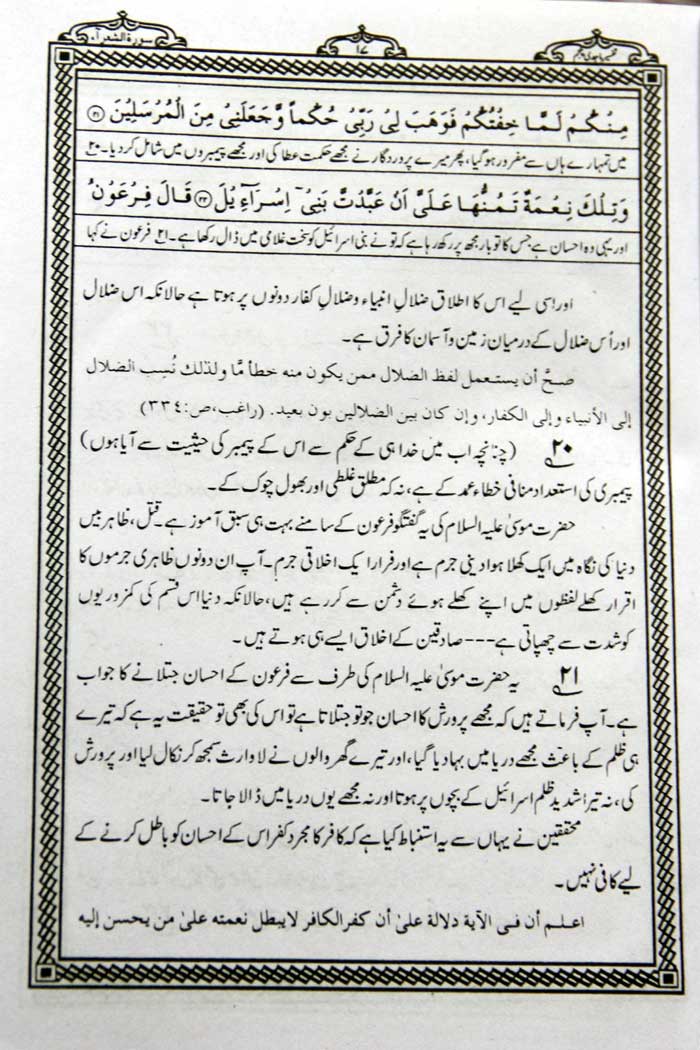 سورة الشعرآء
۱۷
تفسیر ماجدی پنجم
مِنْكُمْ لَمَّا خِفْتُكُمْ فَوَهَبَ لِیْ رَبِّیْ حُكْماً وَّجَعَلَنِیْ مِنَ الْمُرْسَلِیْنَ ﴿۲۱﴾
میں تمہارے ہاں سے مفرور ہوگیا، پھر میرے پروردگار نے مجھے حکمت عطا کی اور مجھے پیمبروں میں شامل کردیا۔ ۲۰
وَتِلْكَ نِعْمَةٌ تَمُنُّهَا عَلَیَّ اَنْ عَبَّدْتَّ بَنِیْۤ اِسْرَآءِیْلَ ﴿۲۲﴾ قَالَ فِرْعَوْنُ
اور یہی وہ احسان ہے جس کا تو بار مجھ پر رکھ رہا ہے کہ تو نے بنی اسرائیل کو سخت غلامی میں ڈال رکھا ہے۔ ۲۱ فرعون نے کہا
اور اسی لیے اس کا اطلاق ضلالِ انبیاء وضلالِ کفار دونوں پر ہوتا ہے حالانکہ اس ضلال
اور اُس ضلال کے درمیان زمین و آسمان کا فرق ہے۔
صحَّ أن يستعمل لفظ الضلال ممن يكون منه خطأ مَّا ولذلك نُسِب الضلال
إلى الأنبياء وإلى الكفار، وإن كان بين الضلالين بون بعيد. (راغب،ص:۳۳٤)
۲۰ (چنانچہ اب میں خدا ہی کے حکم سے اس کے پیمبر کی حیثیت سے آیا ہوں)
پیمبری کی استعداد منافی خطاء عمد کے ہے، نہ کہ مطلق غلطی اور بھول چوک کے۔
حضرت موسیٰ علیہ السلام کی یہ گفتگو فرعون کے سامنے بہت ہی سبق آموز ہے۔ قتل، ظاہر بیں
دنیا کی نگاہ میں ایک کھلا ہوا دینی جرم ہے اور فرار ایک اخلاقی جرم۔ آپ ان دونوں ظاہری جرموں کا
اقرار کھلے لفظوں میں اپنے کھلے ہوئے دشمن سے کر رہے ہیں، حالانکہ دنیا اس قسم کی کمزوریوں
کو شدت سے چھپاتی ہے---صادقین کے اخلاق ایسے ہی ہوتے ہیں۔
۲۱ یہ حضرت موسیٰ علیہ السلام کی طرف سے فرعون کے احسان جتلانے کا جواب
ہے۔ آپ فرماتے ہیں کہ مجھے پرورش کا احسان جو تو جتلاتا ہے تو اس کی بھی تو حقیقت یہ ہے کہ تیرے
ہی ظلم کے باعث مجھے دریا میں بہادیا گیا، اور تیرے گھر والوں نے لاوارث سمجھ کر نکال لیا اور پرورش
کی، نہ تیرا شدید ظلم اسرائیل کے بچوں پر ہوتا اور نہ مجھے یوں دریا میں ڈالا جاتا۔
محققین نے یہاں سے یہ استنباط کیا ہے کہ کافر کا مجرد کفر اس کے احسان کو باطل کرنے کے
لیے کافی نہیں۔
اعلم أن فى الآية دلالة علىٰ أن كفر الكافر لايبطل نعمته علىٰ من يحسن إليه